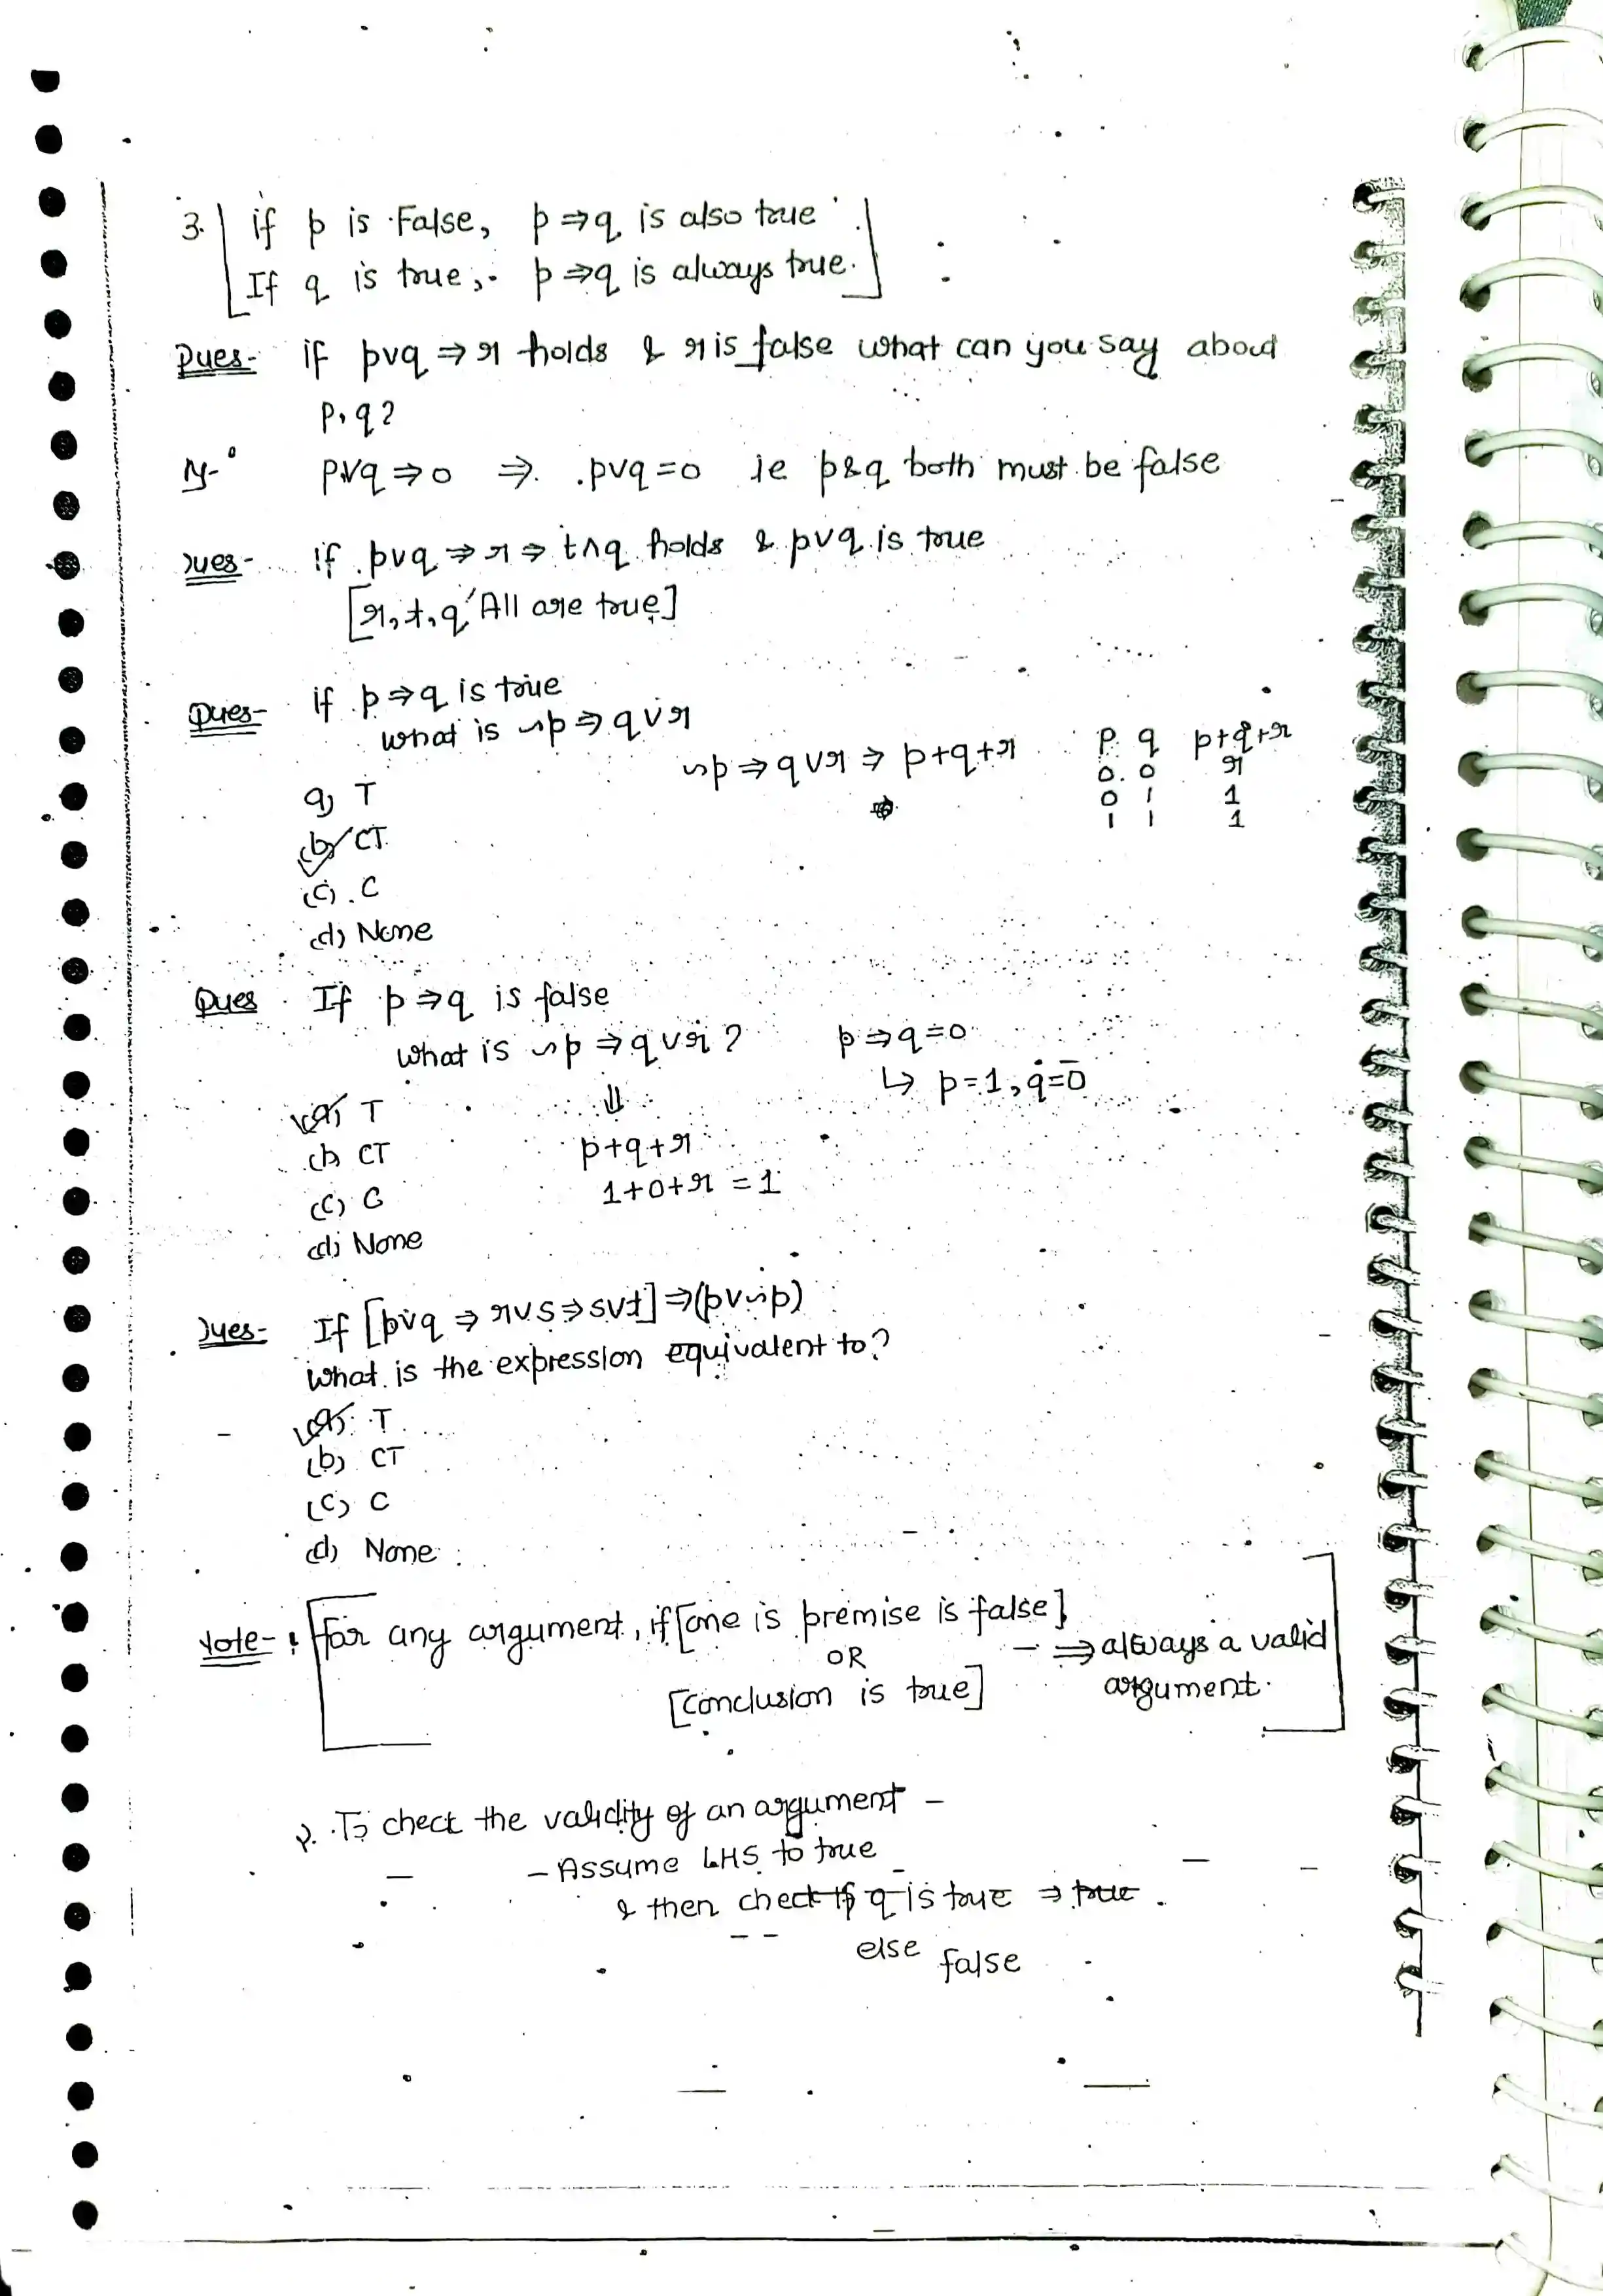 3. if p is False, p ⇒ q is also true
If q is true, p ⇒ q is always true.
Ques- if p∨q ⇒ r holds & r is false what can you say about
p, q?
p∨q ⇒ 0 ⇒ p∨q = 0 ie p&q both must be false
Ques- if p∨q ⇒ r ⇒ t∧q holds & p∨q is true
[r, t, q All are true]
Ques- if p ⇒ q is true
what is ~p ⇒ q∨r
~p ⇒ q∨r ⇒ p+q+r
p q p+q+r
0 0 r
0 1 1
1 1 1
a) T
(b) CT
(c) C
(d) None
Ques If p ⇒ q is false
what is ~p ⇒ q∨r ?
p ⇒ q = 0
↳ p = 1, q = 0
⇓
p+q+r
1+0+r = 1
(a) T
(b) CT
(c) C
(d) None
Ques- If [p∨q ⇒ r∨s ⇒ s∨t] ⇒ (p∨~p)
what is the expression equivalent to?
(a) T
(b) CT
(c) C
(d) None
Note- for any argument, if [one is premise is false]
OR
[conclusion is true]
⇒ always a valid
argument.
2. To check the validity of an argument -
- Assume LHS to true
& then check if q is true ⇒ true.
else false